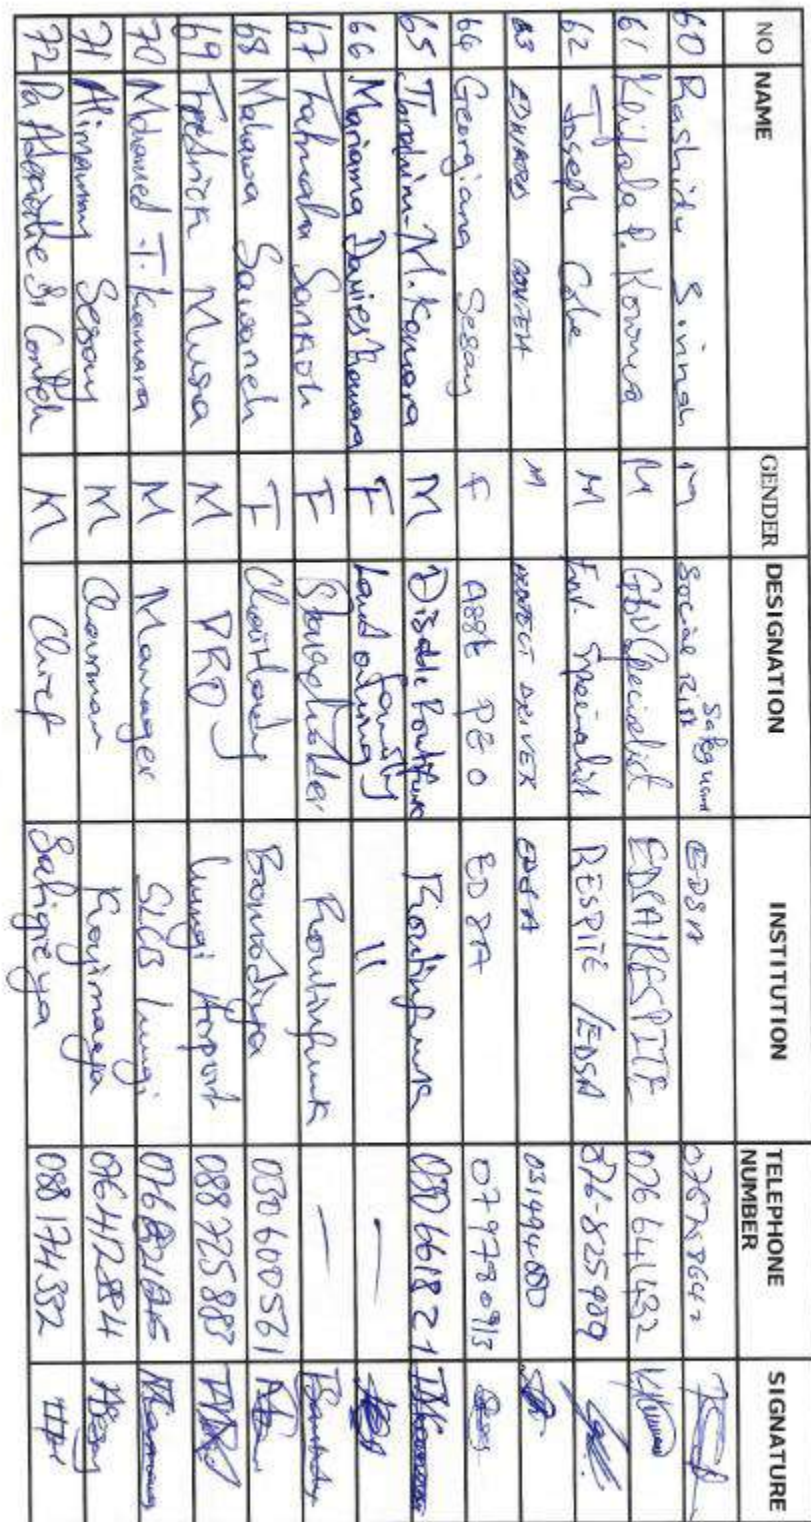 NO NAME GENDER DESIGNATION INSTITUTION TELEPHONE NUMBER SIGNATURE
60 Rashidu Sinnah M Social Risk Safeguard EDSA
61 Keifala P. Kowma M GBV Specialist EDSA/RESPITE 076641432
62 Joseph Cole M Env. Specialist RESPITE /EDSA 076-825909
63 EDWARD CONTEH M PROJECT DRIVER EDSA 031494000
64 Georgiana Sesay F Asst PEO EDSA 079780913
65 Ibrahim M. Kamara M Disable Rontifunk Rontifunk 080661821
66 Mariama Davies Kamara F Land owning family 11 —
67 Fatmata Sankoh F Stakeholder Rontifunk —
68 Mahawa Sawaneh F Chairlady 030600561
69 Fredrick Musa M PRO Lungi Airport 088725888
70 Mohamed T. Kamara M Manager SLCB Lungi
71 Alimamy Sesay M Chairman
72 Pa Conteh M Chief 088174332